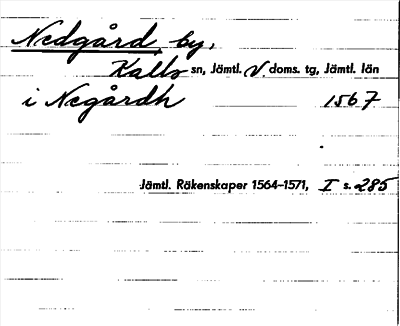 Nedgård, by,
Kalls sn, Jämtl. V. doms. tg, Jämtl. län
i Negårdh 1567
Jämtl. Räkenskaper 1564–1571, I s. 285